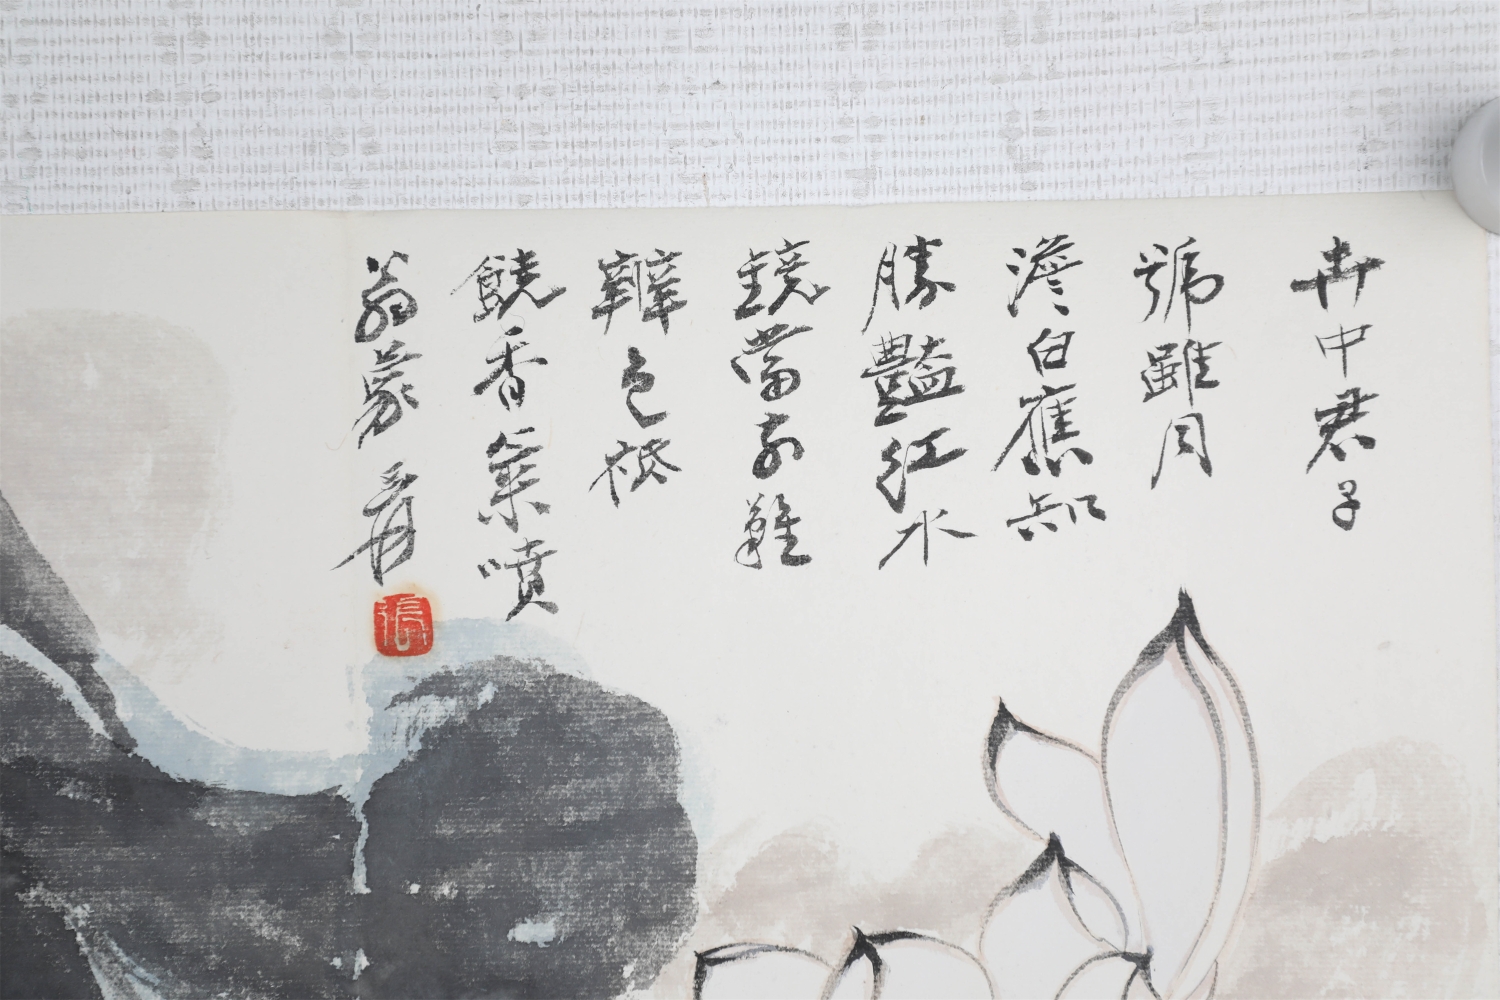 卉中君子
號雖同
澹白應知
勝豔紅水
鏡當前難
辨色祗
饒香氣噴
翁蒙 爰
張